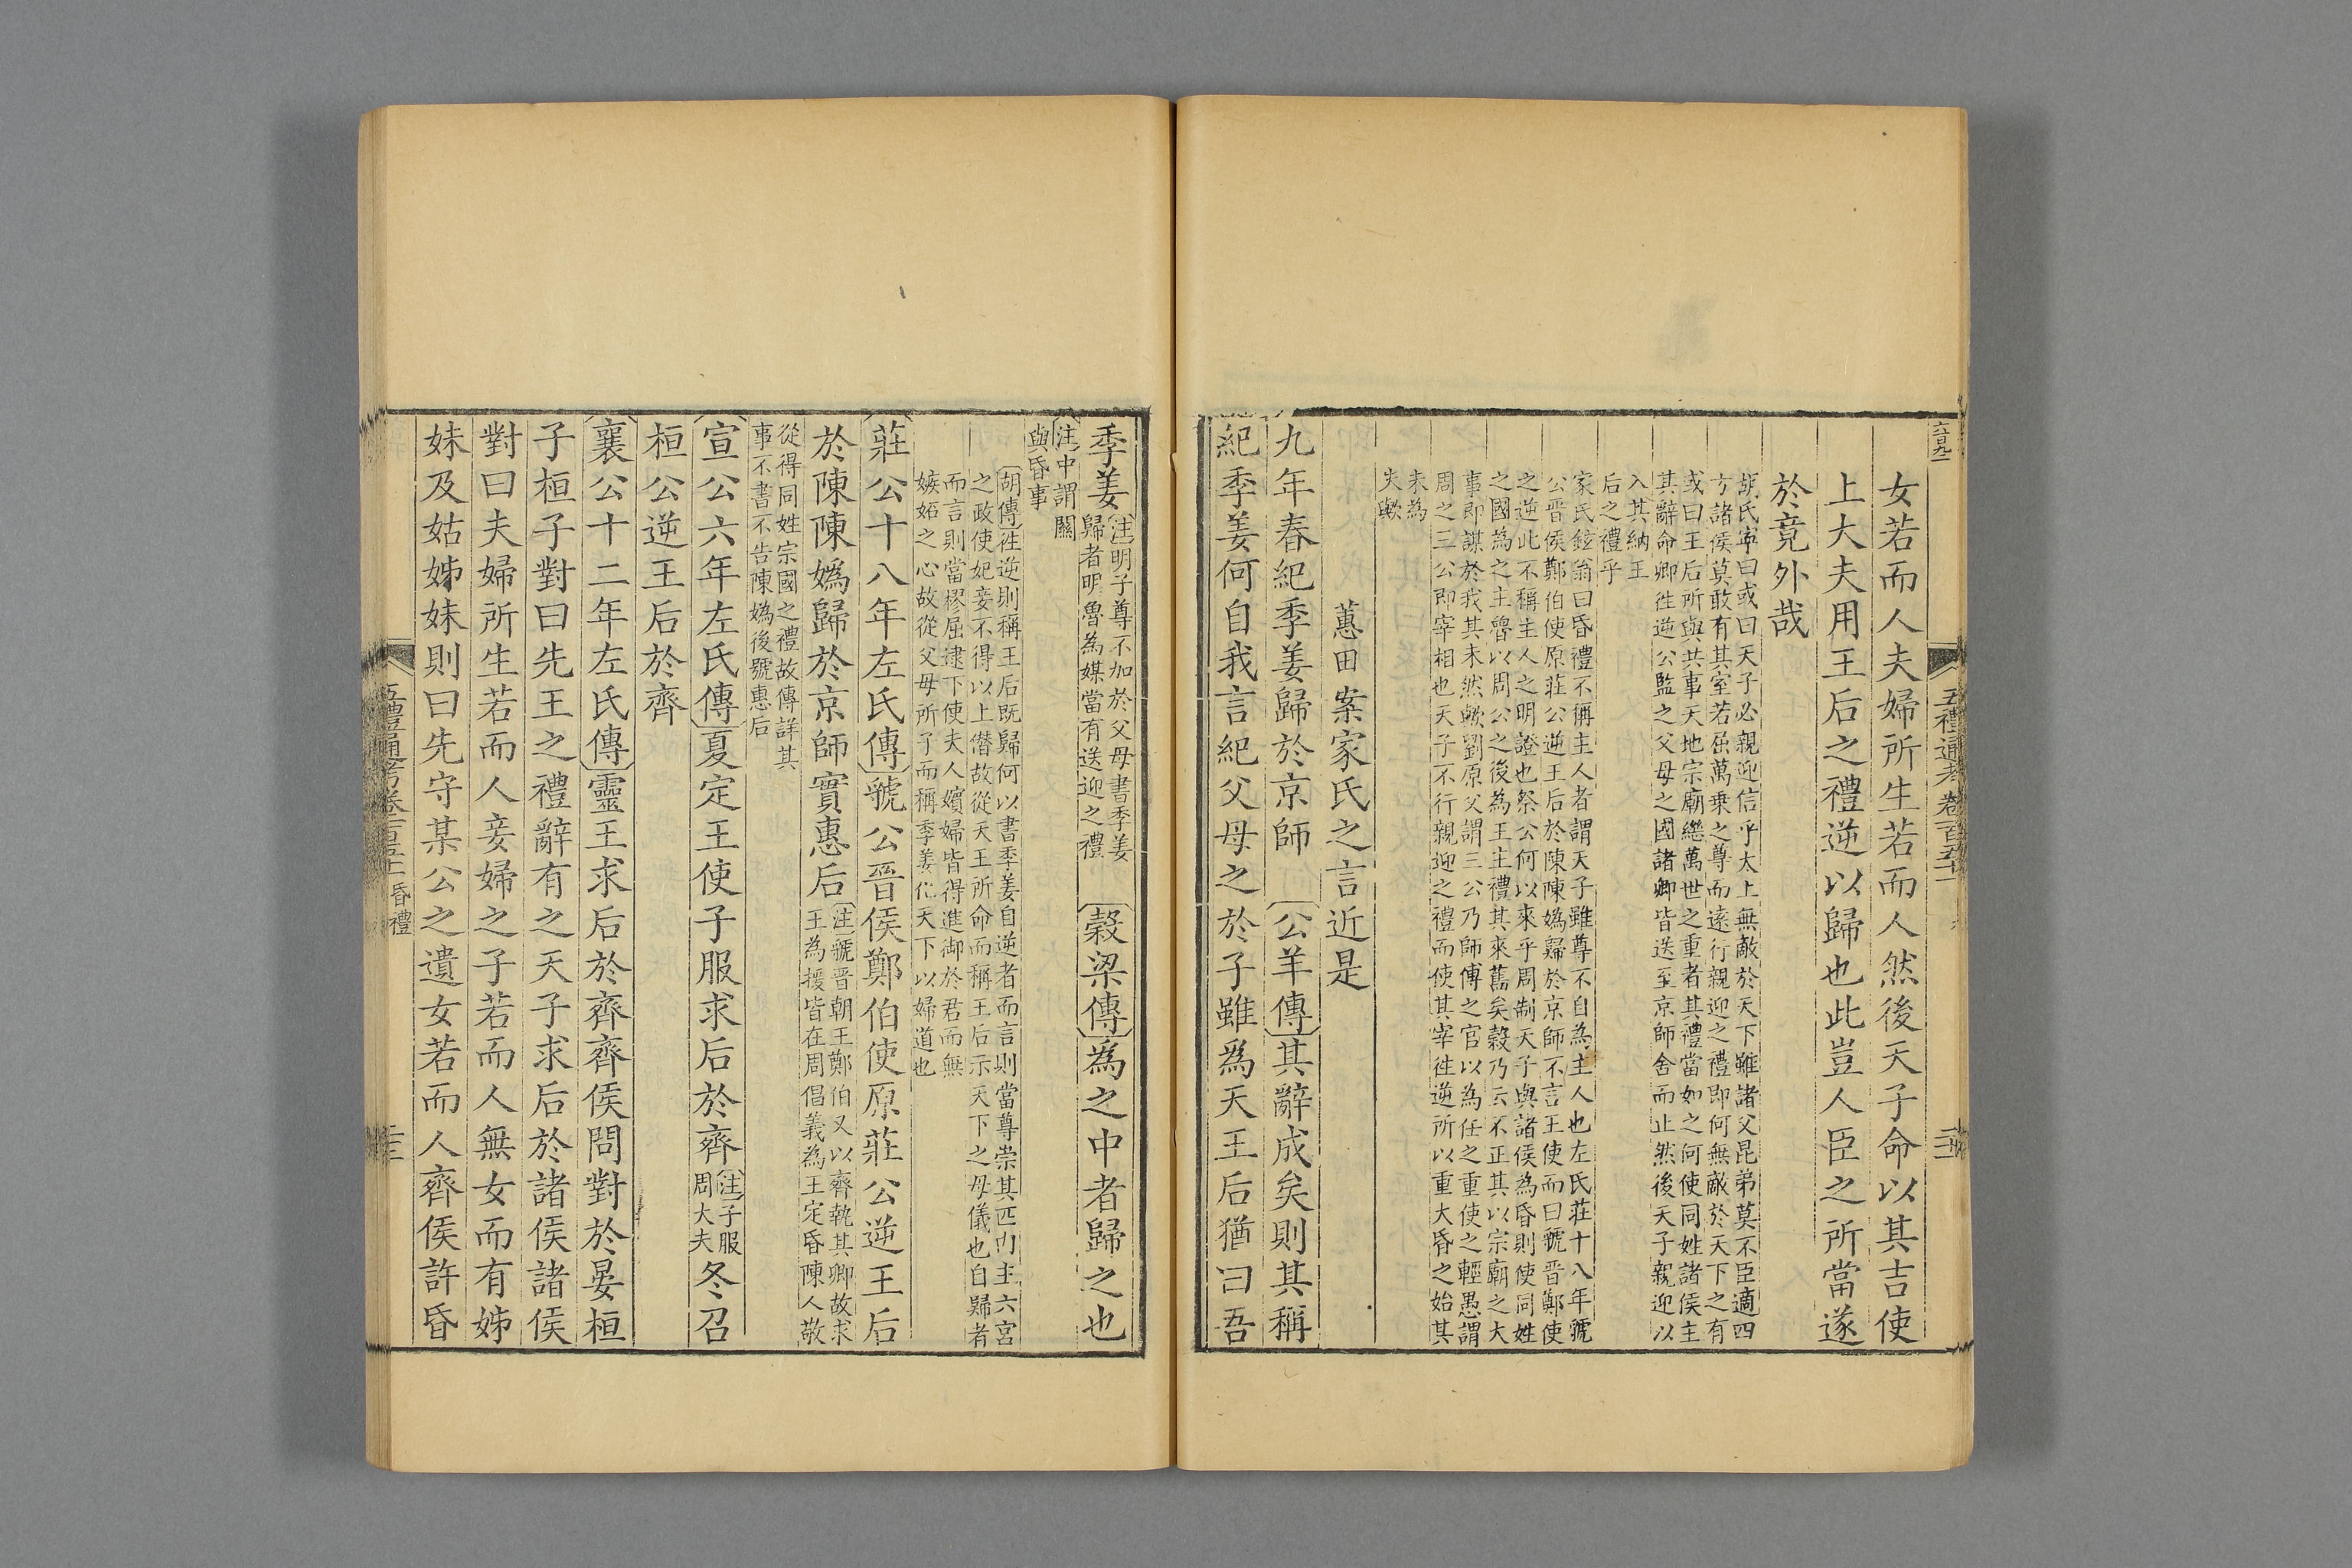 六百九二
五禮通考卷一百五十一
女若而人夫婦所生若而人然後天子命以其吉使
上大夫用王后之禮逆以歸也此豈人臣之所當遂
於竟外哉
胡氏寧曰或曰天子必親迎信乎太上無敵於天下雖諸父昆弟莫不臣適四
方諸侯莫敢有其室若屈萬乗之尊而遠行親迎之禮即何無敵於天下之有
或曰王后所與共事天地宗廟繼萬世之重者其禮當如之何使同姓諸侯主
其辭命卿徃逆公監之父母之國諸卿皆送至京師舍而止然後天子親迎以
入其納王
后之禮乎
家氏鉉翁曰昏禮不稱主人者謂天子雖尊不自為主人也左氏莊十八年虢
公晉侯鄭伯使原莊公逆王后於陳陳媯歸於京師不言王使而曰虢晉鄭使
之逆此不稱主人之明證也祭公何以來乎周制天子與諸侯為昏則使同姓
之國為之主魯以周公之後為王主禮其來舊矣榖乃云不正其以宗廟之大
事即謀於我其未然歟劉原父謂三公乃師傅之官以為任之重使之輕愚謂
周之三公即宰相也天子不行親迎之禮而使其宰徃逆所以重大昏之始其
未為
失歟
蕙田案家氏之言近是
九年春紀季姜歸於京師　公羊傳其辭成矣則其稱
紀季姜何自我言紀父母之於子雖為天王后猶曰吾
季姜注明子尊不加於父母書季姜
歸者明魯為媒當有送迎之禮　榖梁傳為之中者歸之也
注中謂關
與昏事
胡傳徃逆則稱王后既歸何以書季姜自逆者而言則當尊崇其匹內主六宮
之政使妃妾不得以上僭故從天王所命而稱王后示天下之母儀也自歸者
而言則當樛屈逮下使夫人嬪婦皆得進御於君而無
嫉妬之心故從父母所子而稱季姜化天下以婦道也
莊公十八年左氏傳虢公晉侯鄭伯使原莊公逆王后
於陳陳媯歸於京師實惠后注虢晉朝王鄭伯又以齊執其卿故求
王為援皆在周倡義為王定昏陳人敬
從得同姓宗國之禮故傳詳其
事不書不告陳媯後號惠后
宣公六年左氏傳夏定王使子服求后於齊注子服
周大夫冬召
桓公逆王后於齊
襄公十二年左氏傳靈王求后於齊齊侯問對於晏桓
子桓子對曰先王之禮辭有之天子求后於諸侯諸侯
對曰夫婦所生若而人妾婦之子若而人無女而有姊
妹及姑姊妹則曰先守某公之遺女若而人齊侯許昏
五禮通考卷一百五十一 昏禮